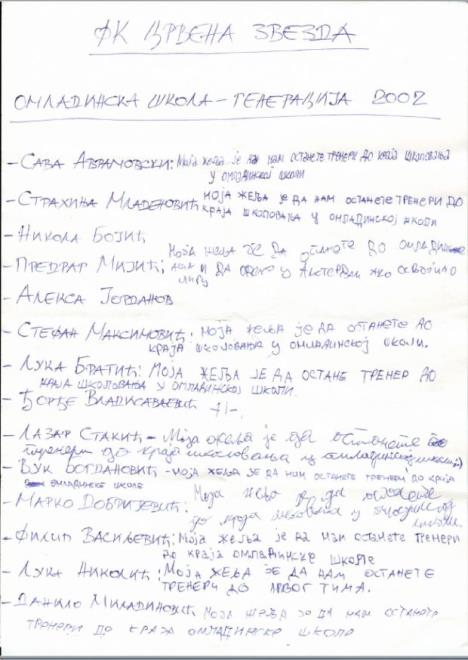 ФК ЦРВЕНА ЗВЕЗДА
ОМЛАДИНСКА ШКОЛА – ГЕНЕРАЦИЈА 2002
– САВА АВРАМОВСКИ: Моја жеља је да нам останете тренери до краја школовања
у омладинској школи
– СТРАХИЊА МЛАДЕНОВИЋ МОЈА ЖЕЉА ЈЕ ДА НАМ ОСТАНЕТЕ ТРЕНЕРИ ДО
КРАЈА ШКОЛОВАЊА У ОМЛАДИНСКОЈ ШКОЛИ
– НИКОЛА БОЈИЋ
МОЈА ЖЕЉА ЈЕ ДА ДО
– ПРЕДРАГ МИЈИЋ; И ДА У
– АЛЕКСА ЈОРДАНОВ
– СТЕФАН МАКСИМОВИЋ: МОЈА ЖЕЉА ЈЕ ДА ОСТАНЕТЕ ДО
КРАЈА ШКОЛОВАЊА У ОМЛАДИНСКОЈ ШКОЛИ.
– ЛУКА БРАТИЋ: МОЈА ЖЕЉА ЈЕ ДА ОСТАНЕ ТРЕНЕР ДО
КРАЈА ШКОЛОВАЊА У ОМЛАДИНСКОЈ ШКОЛИ
– ЂОРЂЕ ВЛАДИСАВЉЕВИЋ –//–
– ЛАЗАР СТАКИЋ – Моја жеља је да останете
тренери до краја школовања у омладинској школи
– ВУК БОГДАНОВИЋ – МОЈА ЖЕЉА ЈЕ ДА НАМ ОСТАНЕТЕ ТРЕНЕРИ ДО КРАЈА
ОМЛАДИНСКЕ ШКОЛЕ
– МАРКО ДОБРИЈЕВИЋ: Моја жеља је да останете
до краја школовања у
– ФИЛИП ВАСИЉЕВИЋ: Моја жеља је да нам останете тренери
до краја омладинске школе
– ЛУКА НИКОЛИЋ: МОЈА ЖЕЉА ЈЕ ДА НАМ ОСТАНЕТЕ
ТРЕНЕРИ ДО ПРВОГ ТИМА.
– ДАНИЛО МИЛАДИНОВИЋ МОЈА ЖЕЉА ЈЕ ДА НАМ
ТРЕНЕРИ ДО КРАЈА ОМЛАДИНСКЕ ШКОЛЕ